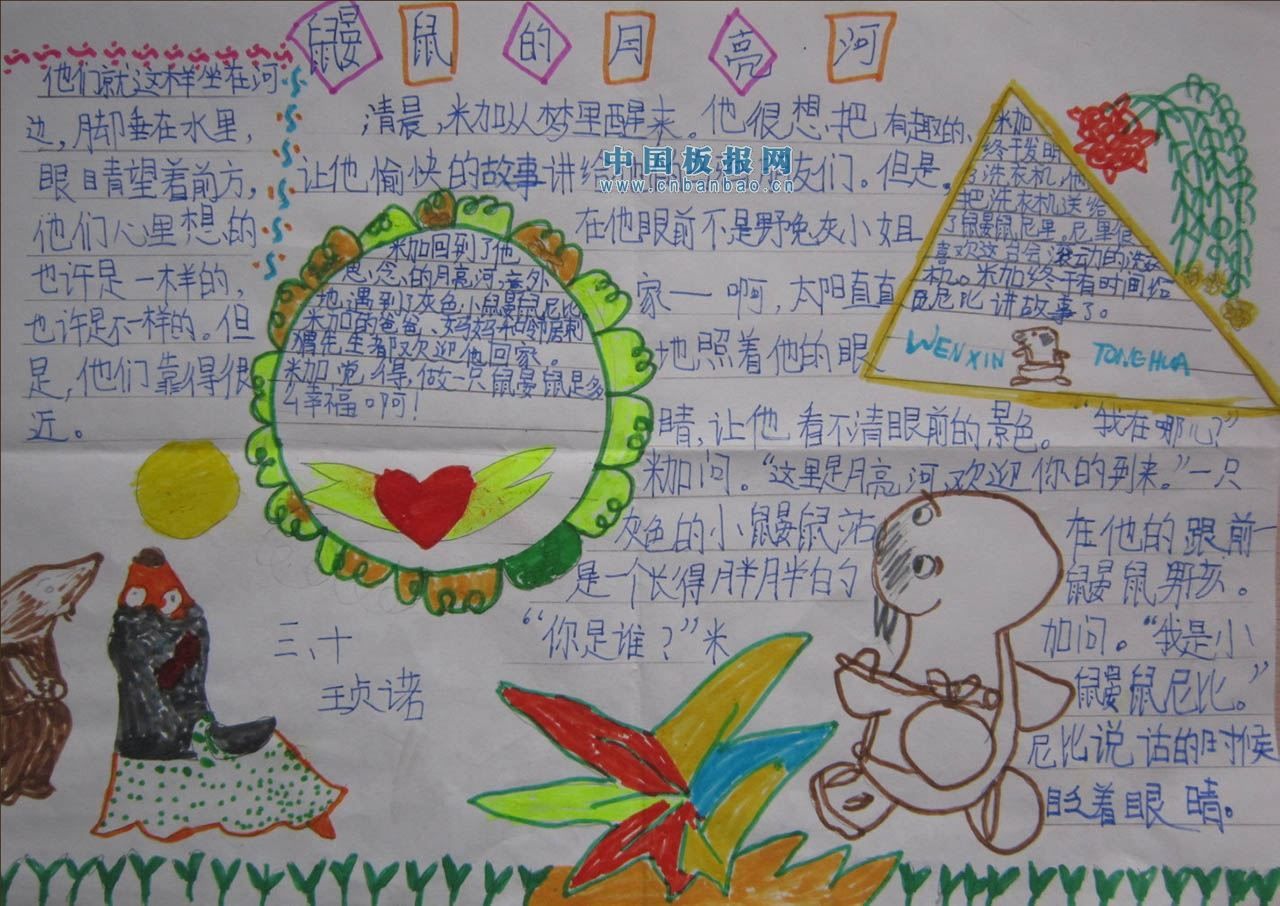 鼹鼠的月亮河
他们就这样坐在河
边，脚垂在水里，
眼睛望着前方，
他们心里想的
也许是一样的，
也许是不一样的。但
是，他们靠得很
近。
清晨，米加从梦里醒来。他很想把有趣的、
让他愉快的故事讲给
友们。但是。
中国板报网
www.cnbanbao.cn
在他眼前不是野兔灰小姐
家一一啊，太阳直直
地照着他的眼
睛，让他看不清眼前的景色。“我在哪儿？”
米加问。“这里是月亮河，欢迎你的到来。”一只
灰色的小鼹鼠站在他的跟前一
是一个长得胖胖的鼹鼠男孩。
“你是谁？”米加问。“我是小
鼹鼠尼比。”
尼比说话的时候
眨着眼睛。
米加回到了他
思念的月亮河，意外
地遇到了灰色小鼹鼠尼比，
米加的爸爸、妈妈和邻居刺
猬先生都欢迎他回家。
米加觉得，做一只鼹鼠是多
么幸福啊！
米加
终于发明
了洗衣机，他
把洗衣机送给
了鼹鼠尼里。尼里很
喜欢这台会滚动的洗衣
机。米加终于有时间给
尼比讲故事了。
WENXIN TONGHUA
三、十
王贞诺